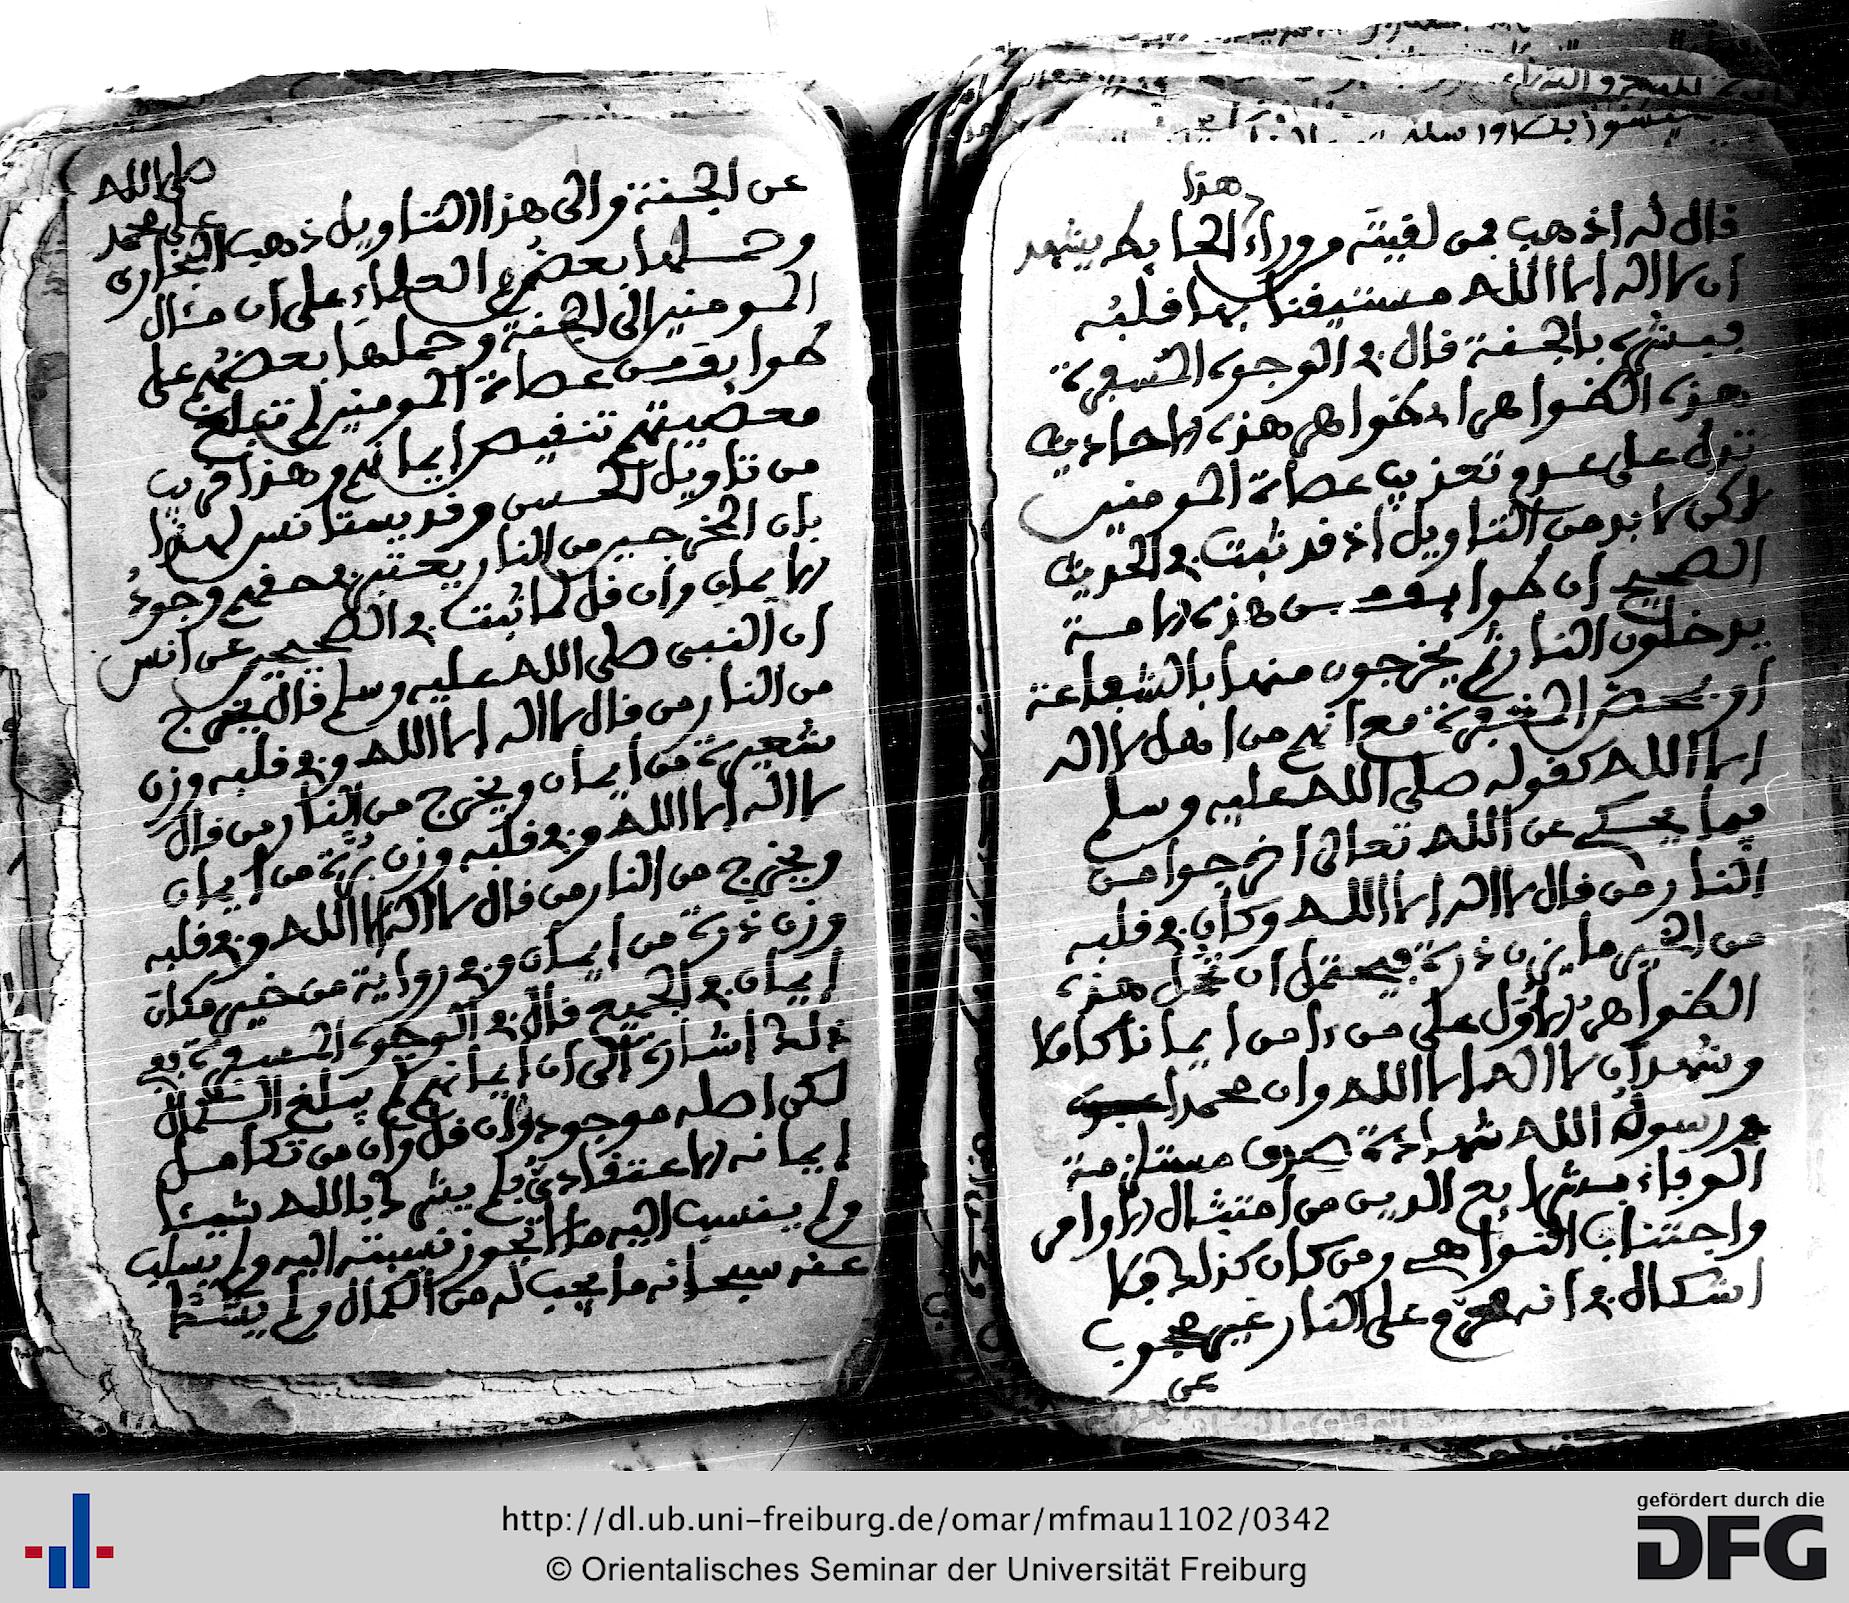 هذا
قال له اذهب فمن لقيته من وراء الحايط يشهد
ان لا اله الا الله مستيقنا بها قلبه
فبشره بالجنة قال في الوجوه المسفرة
هذه الظواهر او ظواهر هذه الاحاديث
تدل على عدم تعذيب عصاة المومنين
لكن لا بد من التاويل اذ قد ثبت في الحديث
الصحيح ان طوايف من هذه الامة
يدخلون النار ثم يخرجون منها بالشفاعة
او بمحض المغفرة مع انهم من اهل لا اله
الا الله كقوله صلى الله عليه وسلم
فيما يحكي عن الله تعالى اخرجوا من
النار من قال لا اله الا الله وكان في قلبه
من الخير ما يزن ذرة فيحتمل ان تحمل هذه
الظواهر الاول على من ءامن ايمانا كاملا
وشهد ان لا اله الا الله وان محمدا
رسول الله شهادة صدق مستلزمة
الوفاء بشرايع الدين من امتثال الاوامر
واجتناب النواهي ومن كان كذلك فلا
اشكال في انه محرم على النار غير محجوب
عن
صلى الله
على محمد
عن الجنة والى هذا التاويل ذهب البخاري
وحملها بعض العلماء على ان مثال
المومنين الى الجنة وحملها بعضهم على
طوايف من عصاة المومنين لم تبلغ
معصيتهم تنقيص ايمانهم وهذا قريب
من تاويل الحسن وقد يستانس لهذا
بان المخرجين من النار يعتبر في حقهم وجود
الايمان وان قل لما ثبت في الصحيح عن انس
ان النبي صلى الله عليه وسلم قال يخرج
من النار من قال لا اله الا الله وفي قلبه وزن
شعيرة من ايمان ويخرج من النار من قال
لا اله الا الله وفي قلبه وزن برة من ايمان
ويخرج من النار من قال لا اله الا الله وفي قلبه
وزن ذرة من ايمان وفي رواية من خير مكان
ايمان في الجميع قال في الوجوه المسفرة ففي
ذلك اشارة الى ان ايمانهم لم يبلغ الكمال
لكن اصله موجود وان قل وان من تكامل
ايمانه الاعتقادي فلم يشرك بالله شيئا
ولم ينسب اليه ما لا تجوز نسبته اليه ولم يسلب
عنه سبحانه ما يجب له من الكمال ولم
http://dl.ub.uni-freiburg.de/omar/mfmau1102/0342
© Orientalisches Seminar der Universität Freiburg
gefördert durch die
DFG